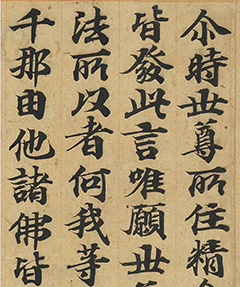 尒時世尊所住精
皆發此言唯願世
法所以者何我等
千那由他諸佛皆